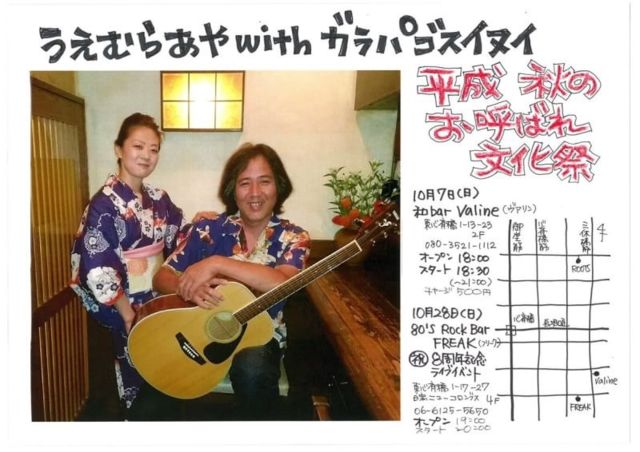 うえむらあや with ガラパゴスイヌイ
平成 秋の
お呼ばれ
文化祭
10月7日(日)
和bar Valine(ヴァリン)
東心斎橋1-13-23
2F
080-3521-1112
オープン 18:00
スタート 18:30
(〜21:00)
チャージ500円
10月28日(日)
80'S Rock Bar
FREAK(フリーク)
祝 8周年記念
ライブイベント
東心斎橋1-17-27
4F
06-6125-5650
オープン 19:00
スタート 20:00
御堂筋
心斎橋筋
三休橋筋
ROOTS
心斎橋
長堀通
Valine
FREAK